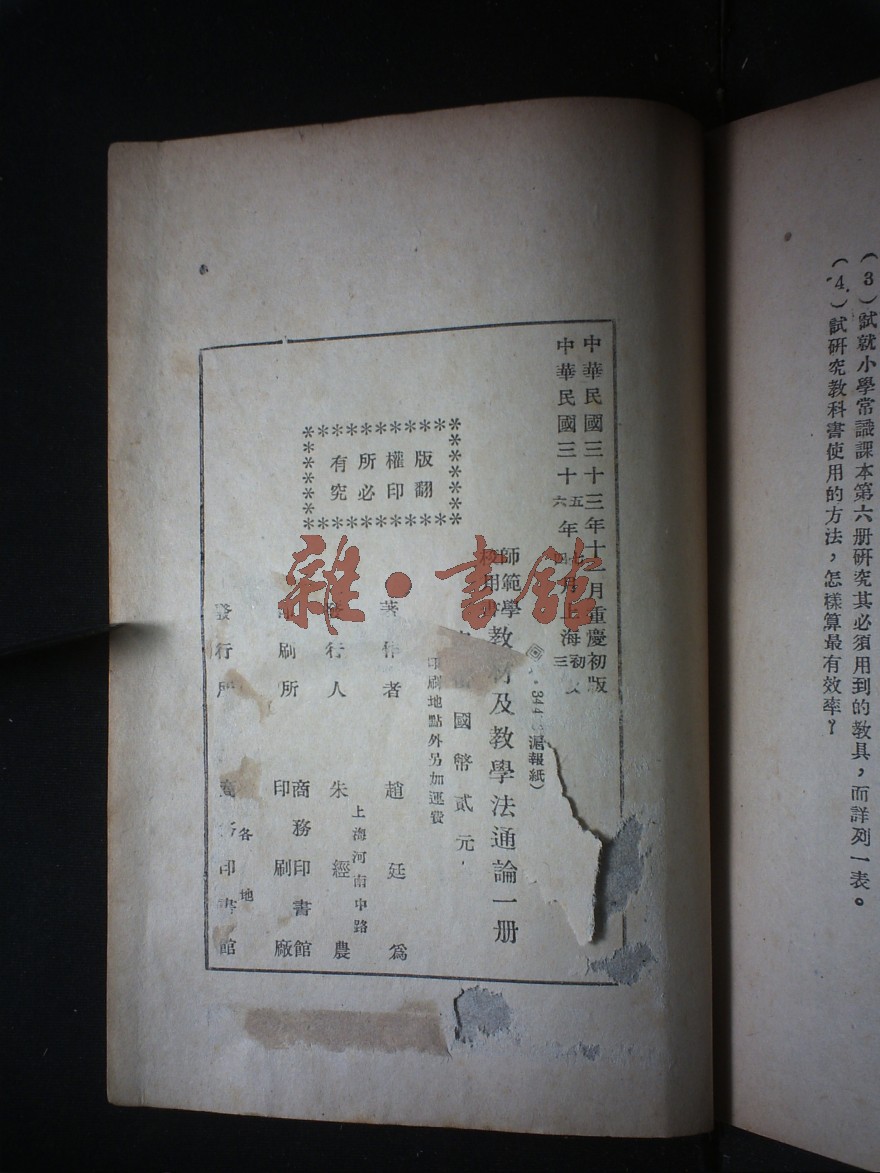 （3）試就小學常識課本第六册研究其必須用到的教具，而詳列一表。
（4）試研究教科書使用的方法，怎樣算最有效率？
中華民國三十三年十一月重慶初版
中華民國三十五年七月上海初
六 四 三
師範學校用書
教材及教學法通論一册
344 滬報紙）
國幣貳元
印刷地點外另加運費
版權所有
翻印必究
著作者 趙廷為
發行人 朱經農
上海河南中路
印刷所 商務印書館印刷廠
發行所 商務印書館
各地
雜·書館